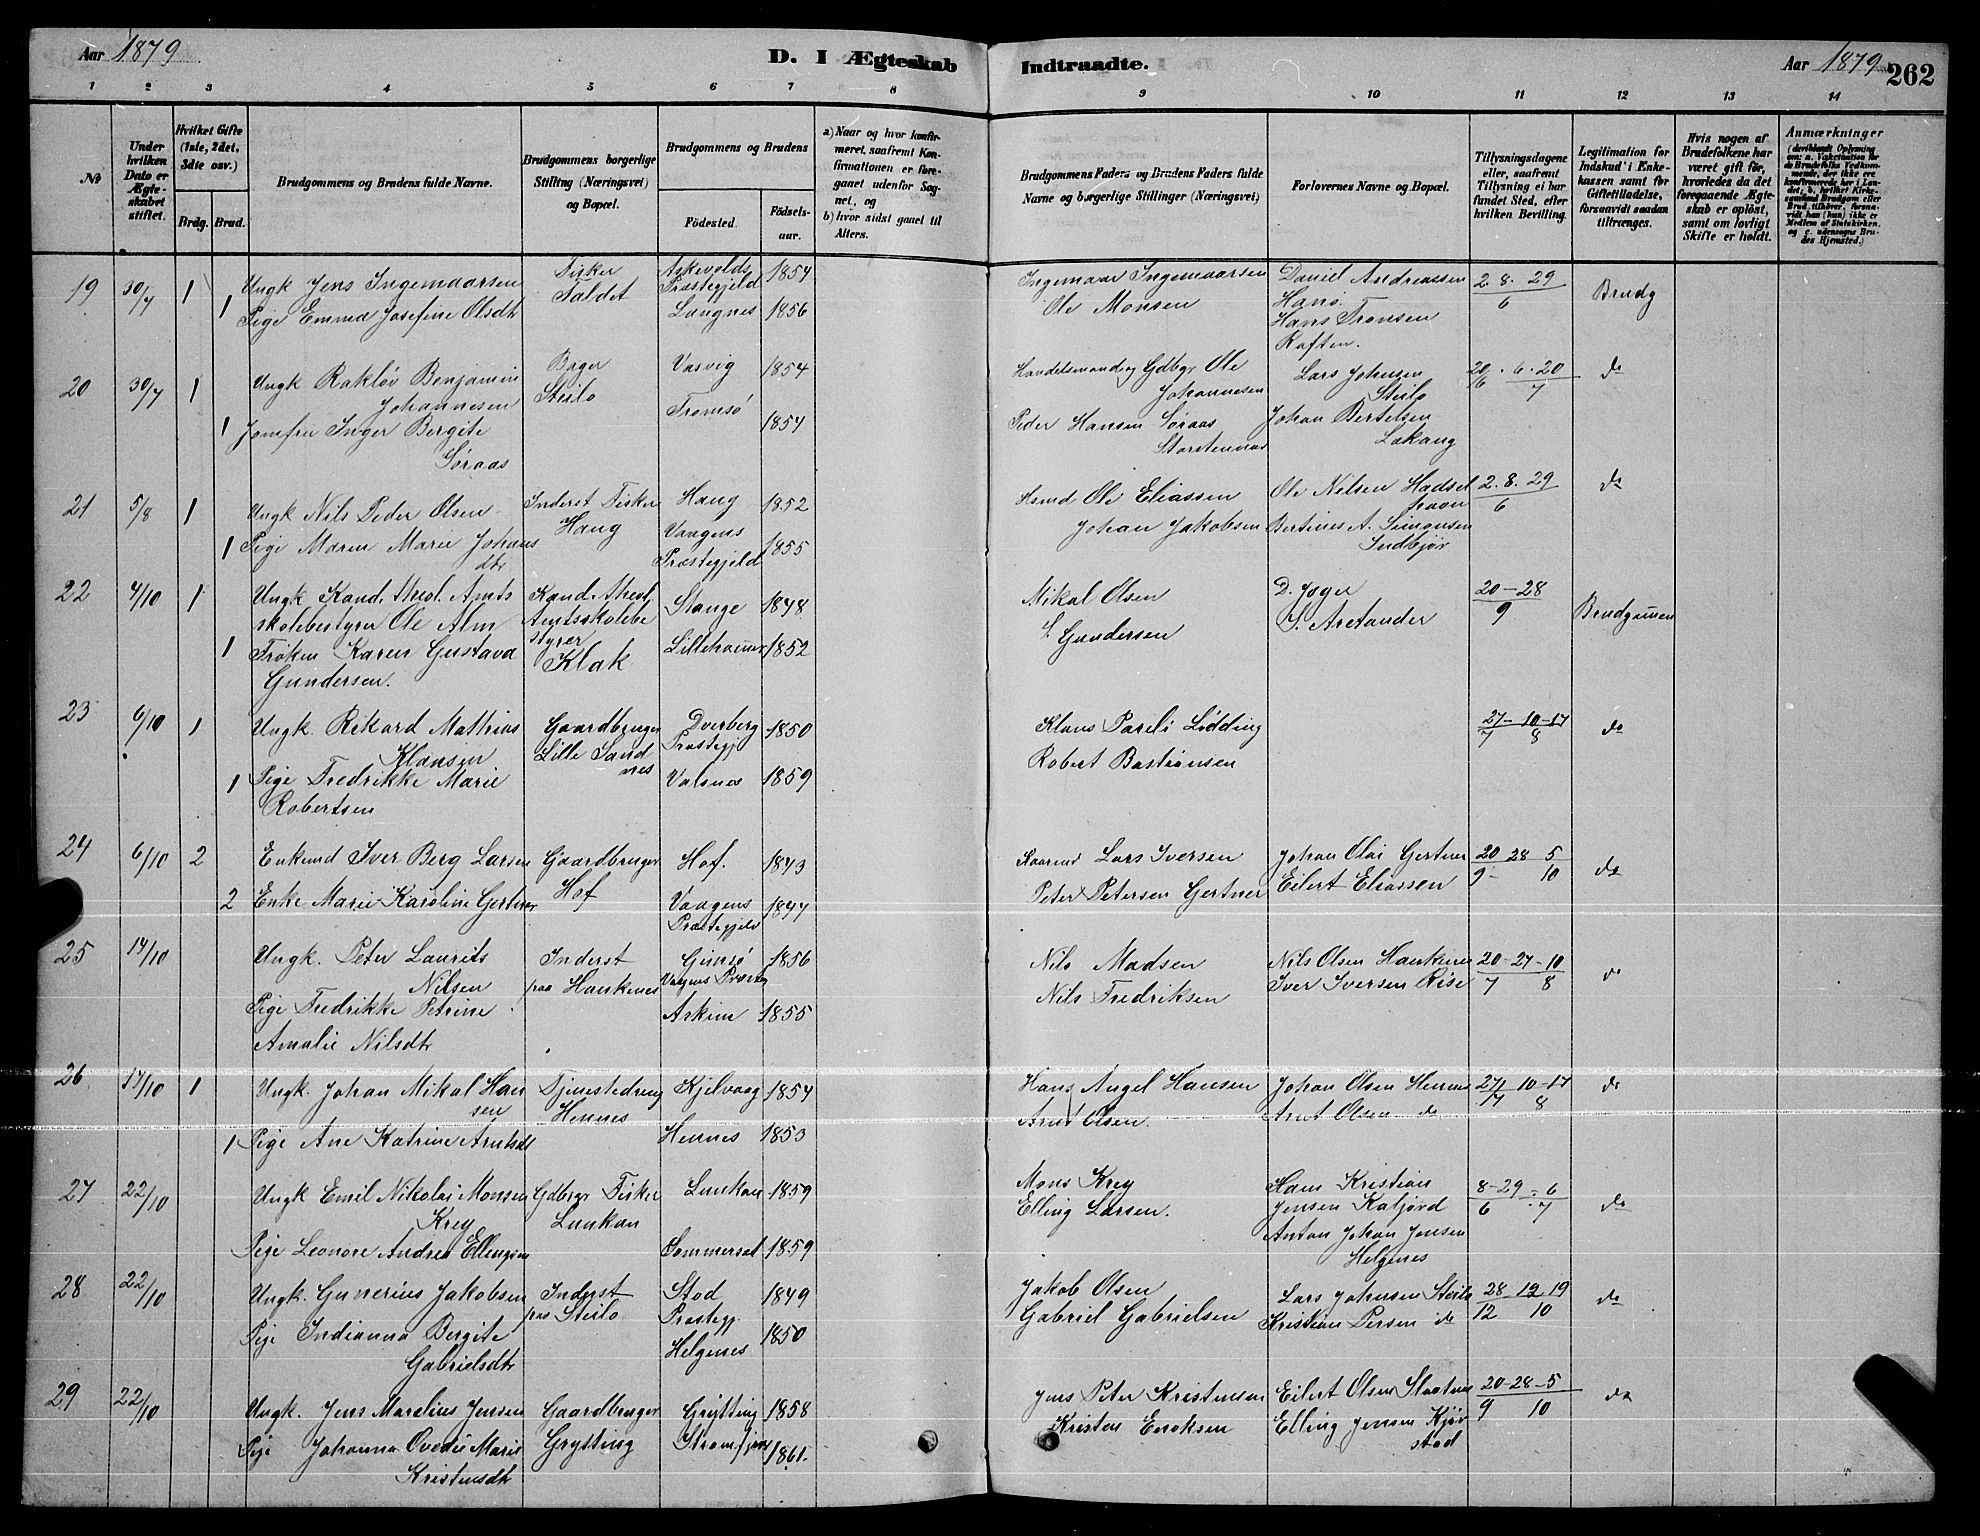 Aar 1879
D. I Ægteskab
Indtraadte.
Aar 1879
262
1 2 3 4 5 6 7 8 9 10 11 12 13 14
No
Under hvilken Dato er Ægteskabet stiftet.
Hvilket Gifte (1ste, 2det, 3dte osv.)
Brdg. Brud.
Brudgommens og Brudens fulde Navne.
Brudgommens borgerlige Stilling (Næringsvei) og Bopæl.
Brudgommens og Brudens
Födested.
Födselsaar.
a) Naar og hvor konfirmeret, saafremt Konfirmationen er foregaaet udenfor Sognet, og
b) hvor sidst gaaet til Alters.
Brudgommens Faders og Brudens Faders fulde Navne og borgerlige Stillinger (Næringsvei)
Forlovernes Navne og Bopæl.
Tillysningsdagene eller, saafremt Tillysning ei har fundet Sted, efter hvilken Bevilling.
Legitimation for Indskud i Enkekassen samt før Giftetilladelse, forsaavidt saadan tiltrænges.
Hvis nogen af Brudefolkene har været gift før, hvorledes da det foregaaende Ægteskab er opløst, samt om lovligt Skifte er holdt.
Anmærkninger
19 30/7 1 Ungk Jens Ingemaarsen Fisker Askevolds Præstegjeld 1854 Ingemaar Ingemaarsen Daniel Andreassen 2. 8. 29 / 6 Brudg
1 Pige Emma Josefine Olsdt Taldet Langnes 1856 Ole Monsen Hans
Hans Tronsen
Raften.
20 30/7 1 Ungk Rakløv Benjamin Johannesen Bager Steilo Vasvig 1854 Handelsmand og Gdbgr Ole Johannesen Lars Johnsen Steilo 20/6 . 6 . 20 / 7 do
1 Jomfru Inger Bergite Søraas Tromsø 1854 Peder Hansen Søraas Johan Bertelsen Lokang
21 5/8 1 Ungk Nils Peder Olsen Inderst Fisker Haug Haug 1852 Hsmd Ole Eliassen Ole Nilsen Hadsel havn 2. 8. 29 / 6 do
1 Pige Maren Marie Johans dtr Vaagens Præstegjeld 1855 Johan Jakobsen Bertines A. Simonsen Indbjør
22 4/10 1 Ungk Kand. theol. Amts skolebestyrer Ole Alm Kand. theol. Amtsskolebe styrer Klak Stange 1848 Mikal Olsen D. Joger 20 – 28 / 9 Brudgommen
1 Frøken Karen Gustava Gundersen. Lillehammer 1852 S. Gundersen S. Aretander
23 6/10 1 Ungk. Rikard Mathias Klausen Gaardbruger Lille Sand nes Dverberg Præstegj 1850 Klaus Pareli Lødding 27 – 10 – 17 / 7 8 do
1 Pige Fredrikke Marie Robertsen Valsnes 1859 Robert Bastiansen
24 6/10 2 Enkemd Iver Berg Larsen Gaardbruger Hof Hof. 1843 Kaarmd Lars Iversen Johan Olai Gertner 20 28 5 / 9 – 10 do
2 Enke Marie Karoline Gertner Vaagens Præstegjeld 1847 Peter Petersen Gertner Eilert Eliassen
25 14/10 Ungk. Peter Laurits Nilsen Inderst paa Haukenes Gimsø Vaagens Præsteg 1856 Nils Madsen Nils Olsen Haukenes 20 – 27 – 10 / 7 8 do
Pige Fredrikke Petrine Amalie Nilsdtr Askim 1855 Nils Fredriksen Iver Iversen Rise
26 17/10 1 Ungk. Johan Mikal Han sen Tjenestedreng Hennes Kjelvaag 1854 Hans Angel Hansen Johan Olsen Hennes 27/7 10 – 17 / 8 do
1 Pige Ane Katrine Arntsdt Hennes 1853 Arnt Olsen. Arnt Olsen do
27 22/10 Ungk Emil Nikolai Monsen Krey Gdbrgr Fisker Lunkan Lunkan 1859 Mons Krey Hans Kristian Jensen Kalfjord 8 – 29 – 6 / 6 7 do
Pige Leonore Andrea Ellingsen Sommerset 1859 Elling Larsen. Anton Johan Jensen Helgenes
28 22/10 Ungk. Gunerius Jakobsen Inderst paa Steilo Stod Præstegj. 1849 Jakob Olsen Lars Johnsen Steilo 28 12 19 / 12 10 do
Pige Indianna Bergite Gabrielsdtr Helgenes 1850 Gabriel Gabrielsen Kristian Persen do
29 22/10 Ungk. Jens Marelius Jensen Gaardbruger Grytting Grytting 1858 Jens Peter Kristensen Eilert Olsen Slaatnes 20 – 28 – 5 / 9 10 do
Pige Johanna Ovedie Marie Kristensdtr 1861. Kristen Enoksen Elling Jensen Kjør stad